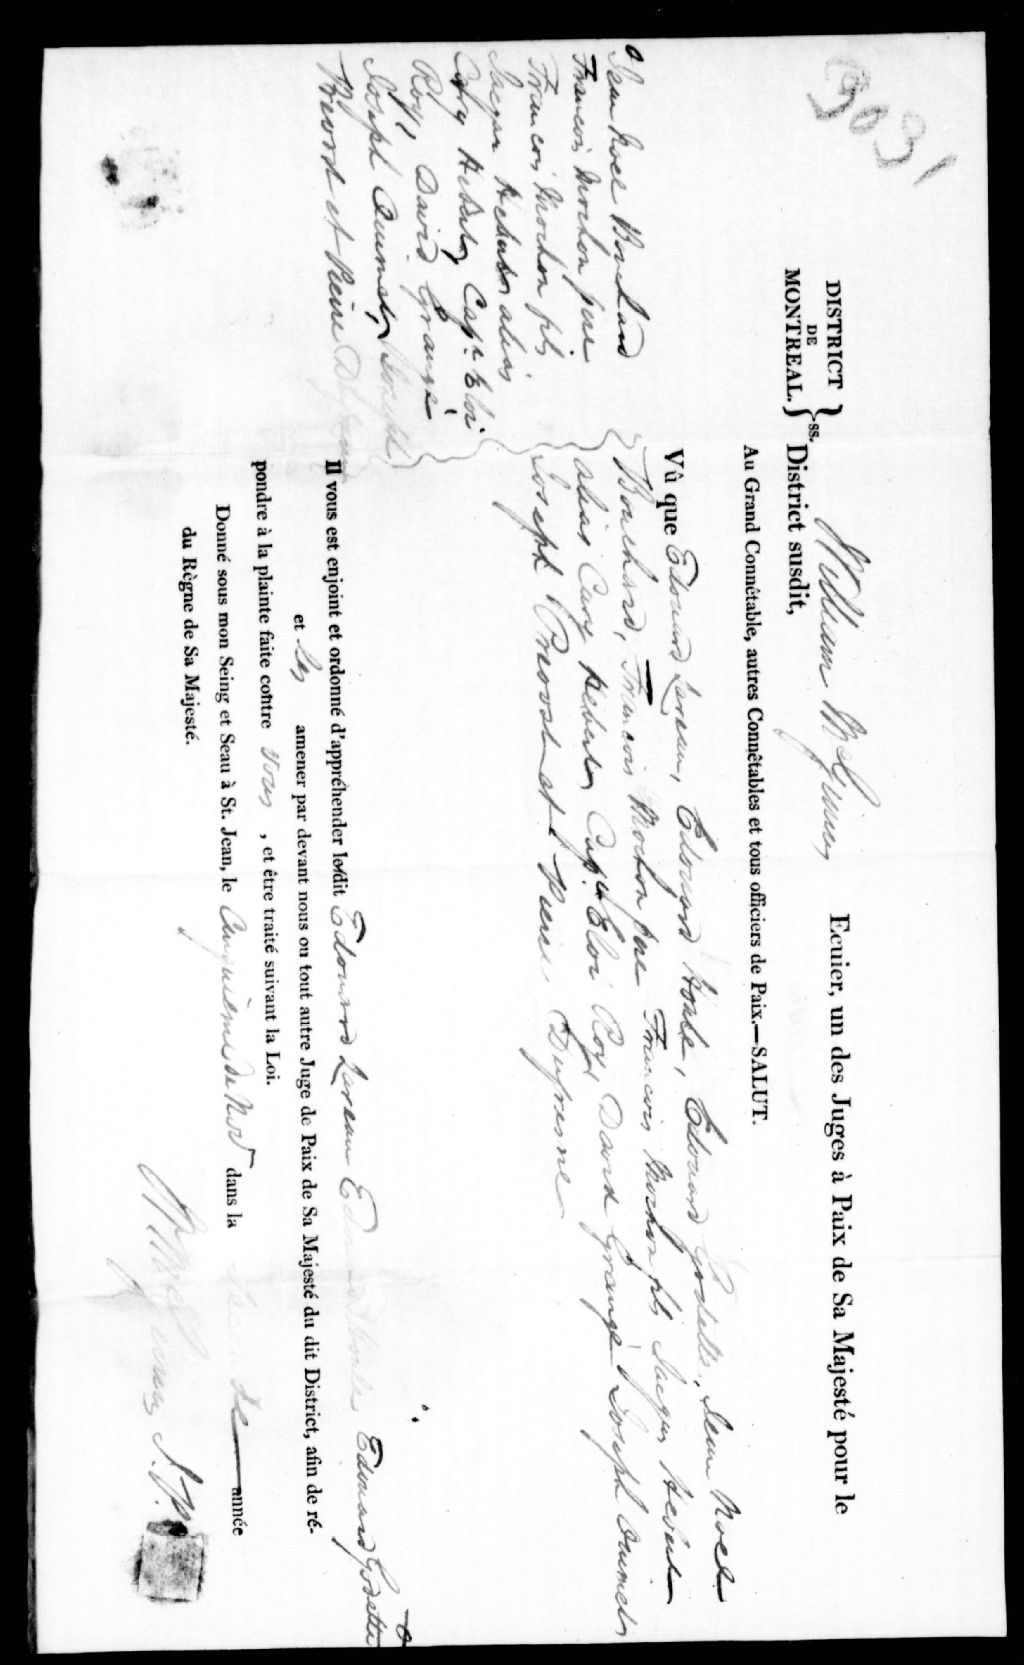 3031
DISTRICT
DE
MONTREAL.
} ss.
William McGinnis Ecuier, un des Juges à Paix de Sa Majesté pour le
District susdit,
Au Grand Connétable, autres Connêtables et tous officiers de Paix.—SALUT.
Vû que Edouard Lareau, Edouard Monté, Edouard Godette, Jean Noel
Bouchard, Francois Mochon pere Francois Mochon fils Jacques Hebert
alias Cary Hebert, Capt. Eloi Roy, David Grangé, Joseph Ouimet,
Joseph Prevost et Pierre Dufresne
Jean Noel Bouchard
Francois Mochon pere
Francois Mochon fils
Jacques Hebert alias
Cary Hebert, Capt. Eloi
Roy, David Grangé
Joseph Ouimet, Joseph
Prevost et Pierre Dufresne
Il vous est enjoint et ordonné d'appréhender lesdit Edouard Lareau Edouard Monté Edouard Godette
et les amener par devant nous ou tout autre Juge de Paix de Sa Majesté du dit District, afin de ré-
pondre à la plainte faite contre vous, et être traité suivant la Loi.
Donné sous mon Seing et Seau à St. Jean, le Cinquième de Nov dans la seconde année
du Règne de Sa Majesté.
W McGinnis J.P.